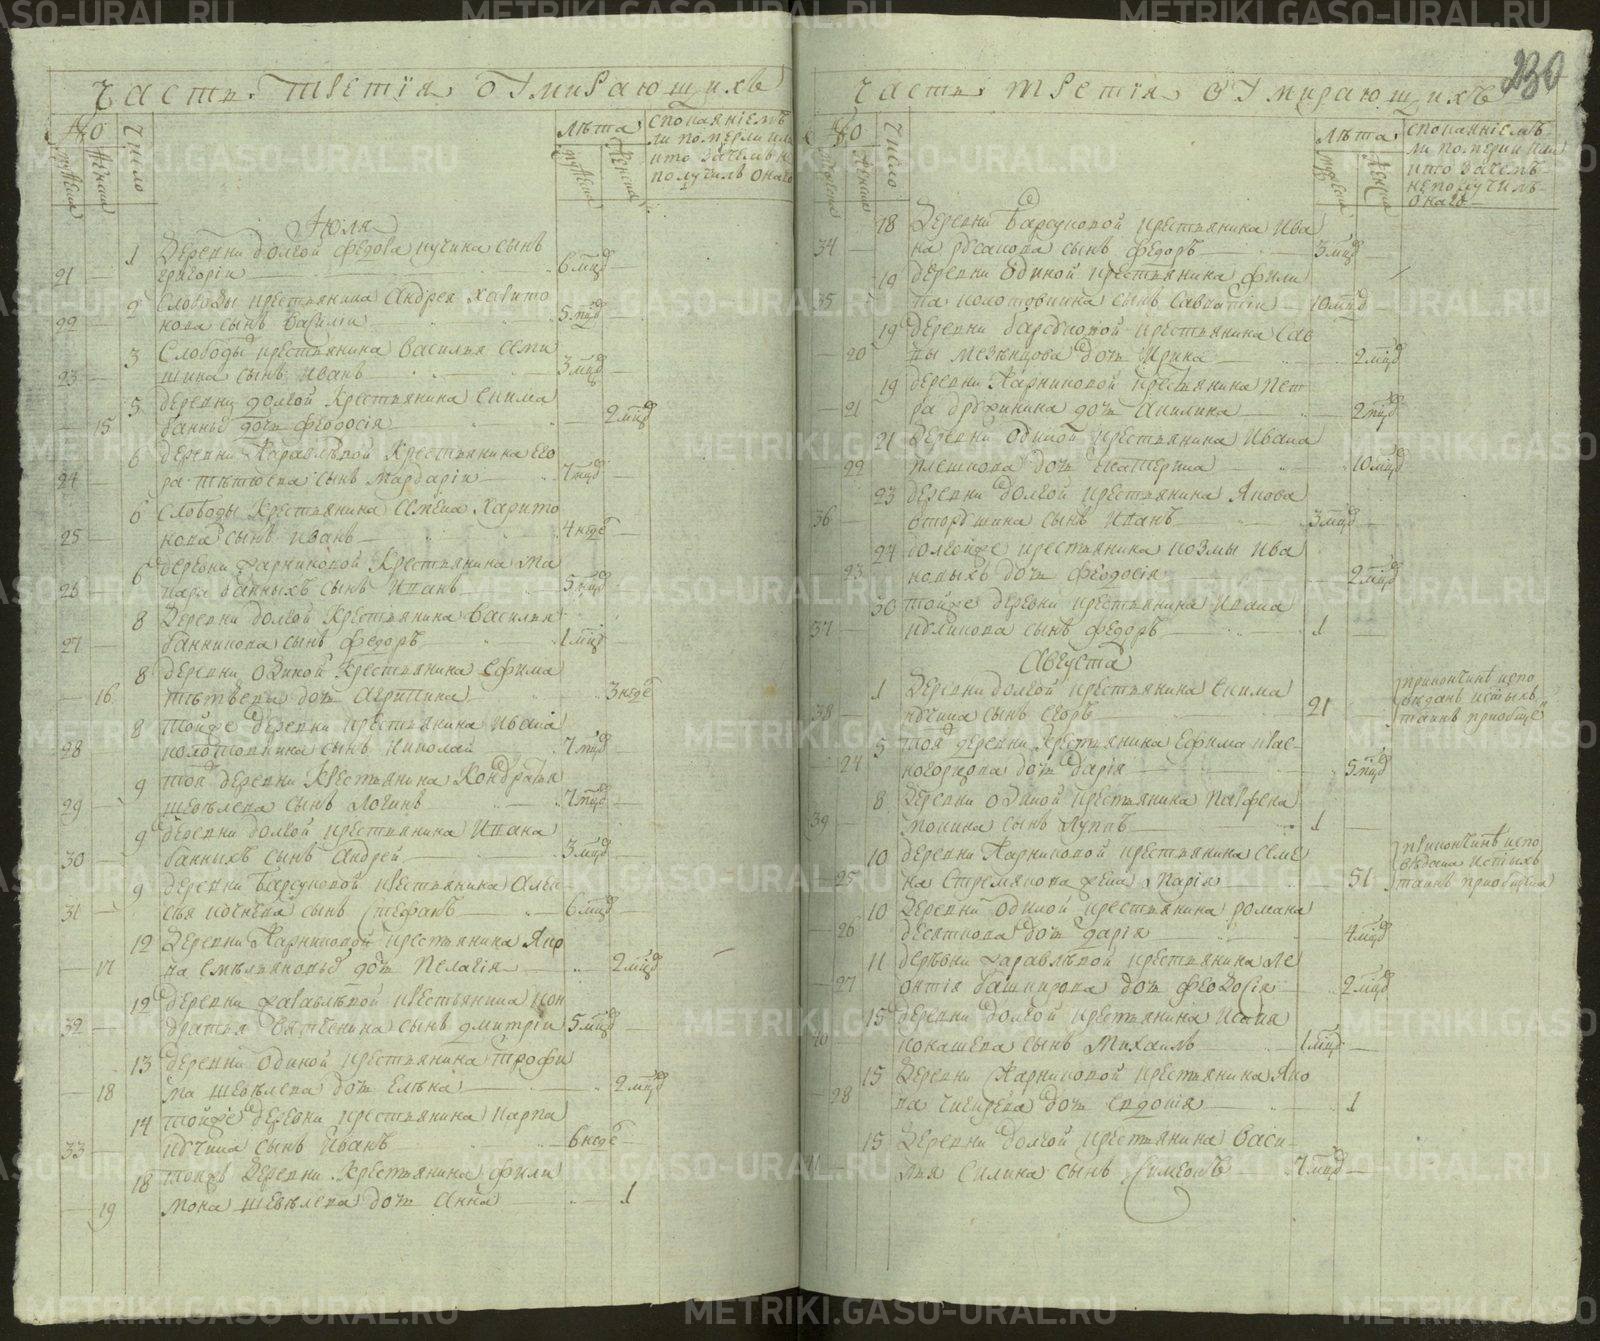 Часть третія ОУмирающихъ
№
мужеска
женска
число
лѣта
мужеска
женска
споканніемъ
ли померли или
кто зачемъ не
получилъ онаго
Июля
1 Деревни долгой Федора кучина сынъ
21 григорги 6 мцд
2 Слободы крестьянина Андрея Харито
22 нова сынъ Василги 5 мцд
3 Слободы крестьянина Василья Семи
23 шина сынъ Иванъ 3 мцд
5 деревни долгой Крестьянина Екима
15 банныъ дочь Феодосія 2 мцд
6 деревни Журавлевой Крестьянина Его
24 ра сынъ Мардарги 7 мцд
6 Слободы Крестьянина Семена Харито
25 нова сынъ Иванъ 4 неде
6 деревни Жарниковой Крестьянина Ма
26 кара банныхъ сынъ Иванъ 5 мцд
8 Деревни долгой Крестьянина Василья
27 банникова сынъ Федоръ 1 мцд
8 деревни Одиной Крестьянина Ефима
16 дочь Агрипина 3 неде
8 тойже деревни крестьянина Ивана
28 колотовкина сынъ Николай 7 мцд
9 той деревни Крестьянина Кондратья
29 шевелева сынъ Логинъ 7 мцд
9 деревни долгой крестьянина Ивана
30 банныхъ сынъ Андрей 3 мцд
9 деревни Барсуковой крестьянина Алек
31 сѣя кочнева сынъ Стефанъ 6 мцд
12 Деревни Жарниковой крестьянина Яко
17 ва дочь Пелагія 2 мцд
12 деревни Журавлевой крестьянина Кон
32 дратья Вятченина сынъ дмитрги 5 мцд
13 деревни Одиной крестьянина трофи
18 ма шевелева дочь Елена 2 мцд
14 тойже деревни крестьянина Карпа
33 сынъ Иванъ 6 неде
18 тоижъ Деревни Крестьянина Фили
19 мона шевелева дочь Анна 1
230
Часть третія ОУмирающихъ
№
мужеска
женска
число
лѣта
мужеска
женска
споканніемъ
ли померли или
кто зачемъ
неполучилъ
онаго
18 Деревни Барсуковой крестьянина Ива
34 на русанова сынъ Федоръ 3 мцд
19 деревни Одиной крестьянина Фили
35 па колотовкина сынъ Савватги 10 мцд
19 деревни барсуковой крестьянина Сав
20 вы мезенцова дочь Ирина 2 мцд
19 деревни Жарниковой крестьянина Пет
21 ра дружинина дочь Акилина 2 мцд
21 Деревни Одиной крестьянина Ивана
22 плешкова дочь Екатерина 10 мцд
23 деревни долгой крестьянина Якова
36 сынъ Иванъ 3 мцд
24 долгойже крестьянина козмы Ива
23 новыхъ дочь Феодосія 2 мцд
30 тойже деревни крестьянина Ивана
37 куликова сынъ Федоръ 1
Августа
1 Деревни долгой крестьянина Екима
38 кучина сынъ Егоръ 21
прикончинѣ испо
веданъ истыхъ
таинъ приобще
5 той деревни Крестьянина Ефима крас-
24 ногорцова дочь Дарія 5 мцд
8 Деревни Одиной крестьянина Парфена
39 мокина сынъ Луппъ 1
10 деревни Жарниковой крестьянина Семе
25 на Стремякова жена Марія 51
прикончинѣ испо
ведана истыхъ
таинъ приобщена
10 Деревни Одиной крестьянина романа
26 десяткова дочь дарія 4 мцд
11 деревни Журавлевой крестьянина Ле
27 онтія башкирова дочь Феодосія 2 мцд
15 деревни Долгой крестьянина Исакия
40 кокашева сынъ Михаилъ 1 мцд
15 Деревни Жарниковой крестьянина Яко
28 ва чигирева дочь Евдокія 1
15 Деревни Долгой крестьянина Васи-
лья Силина сынъ Симеонъ 7 мцд